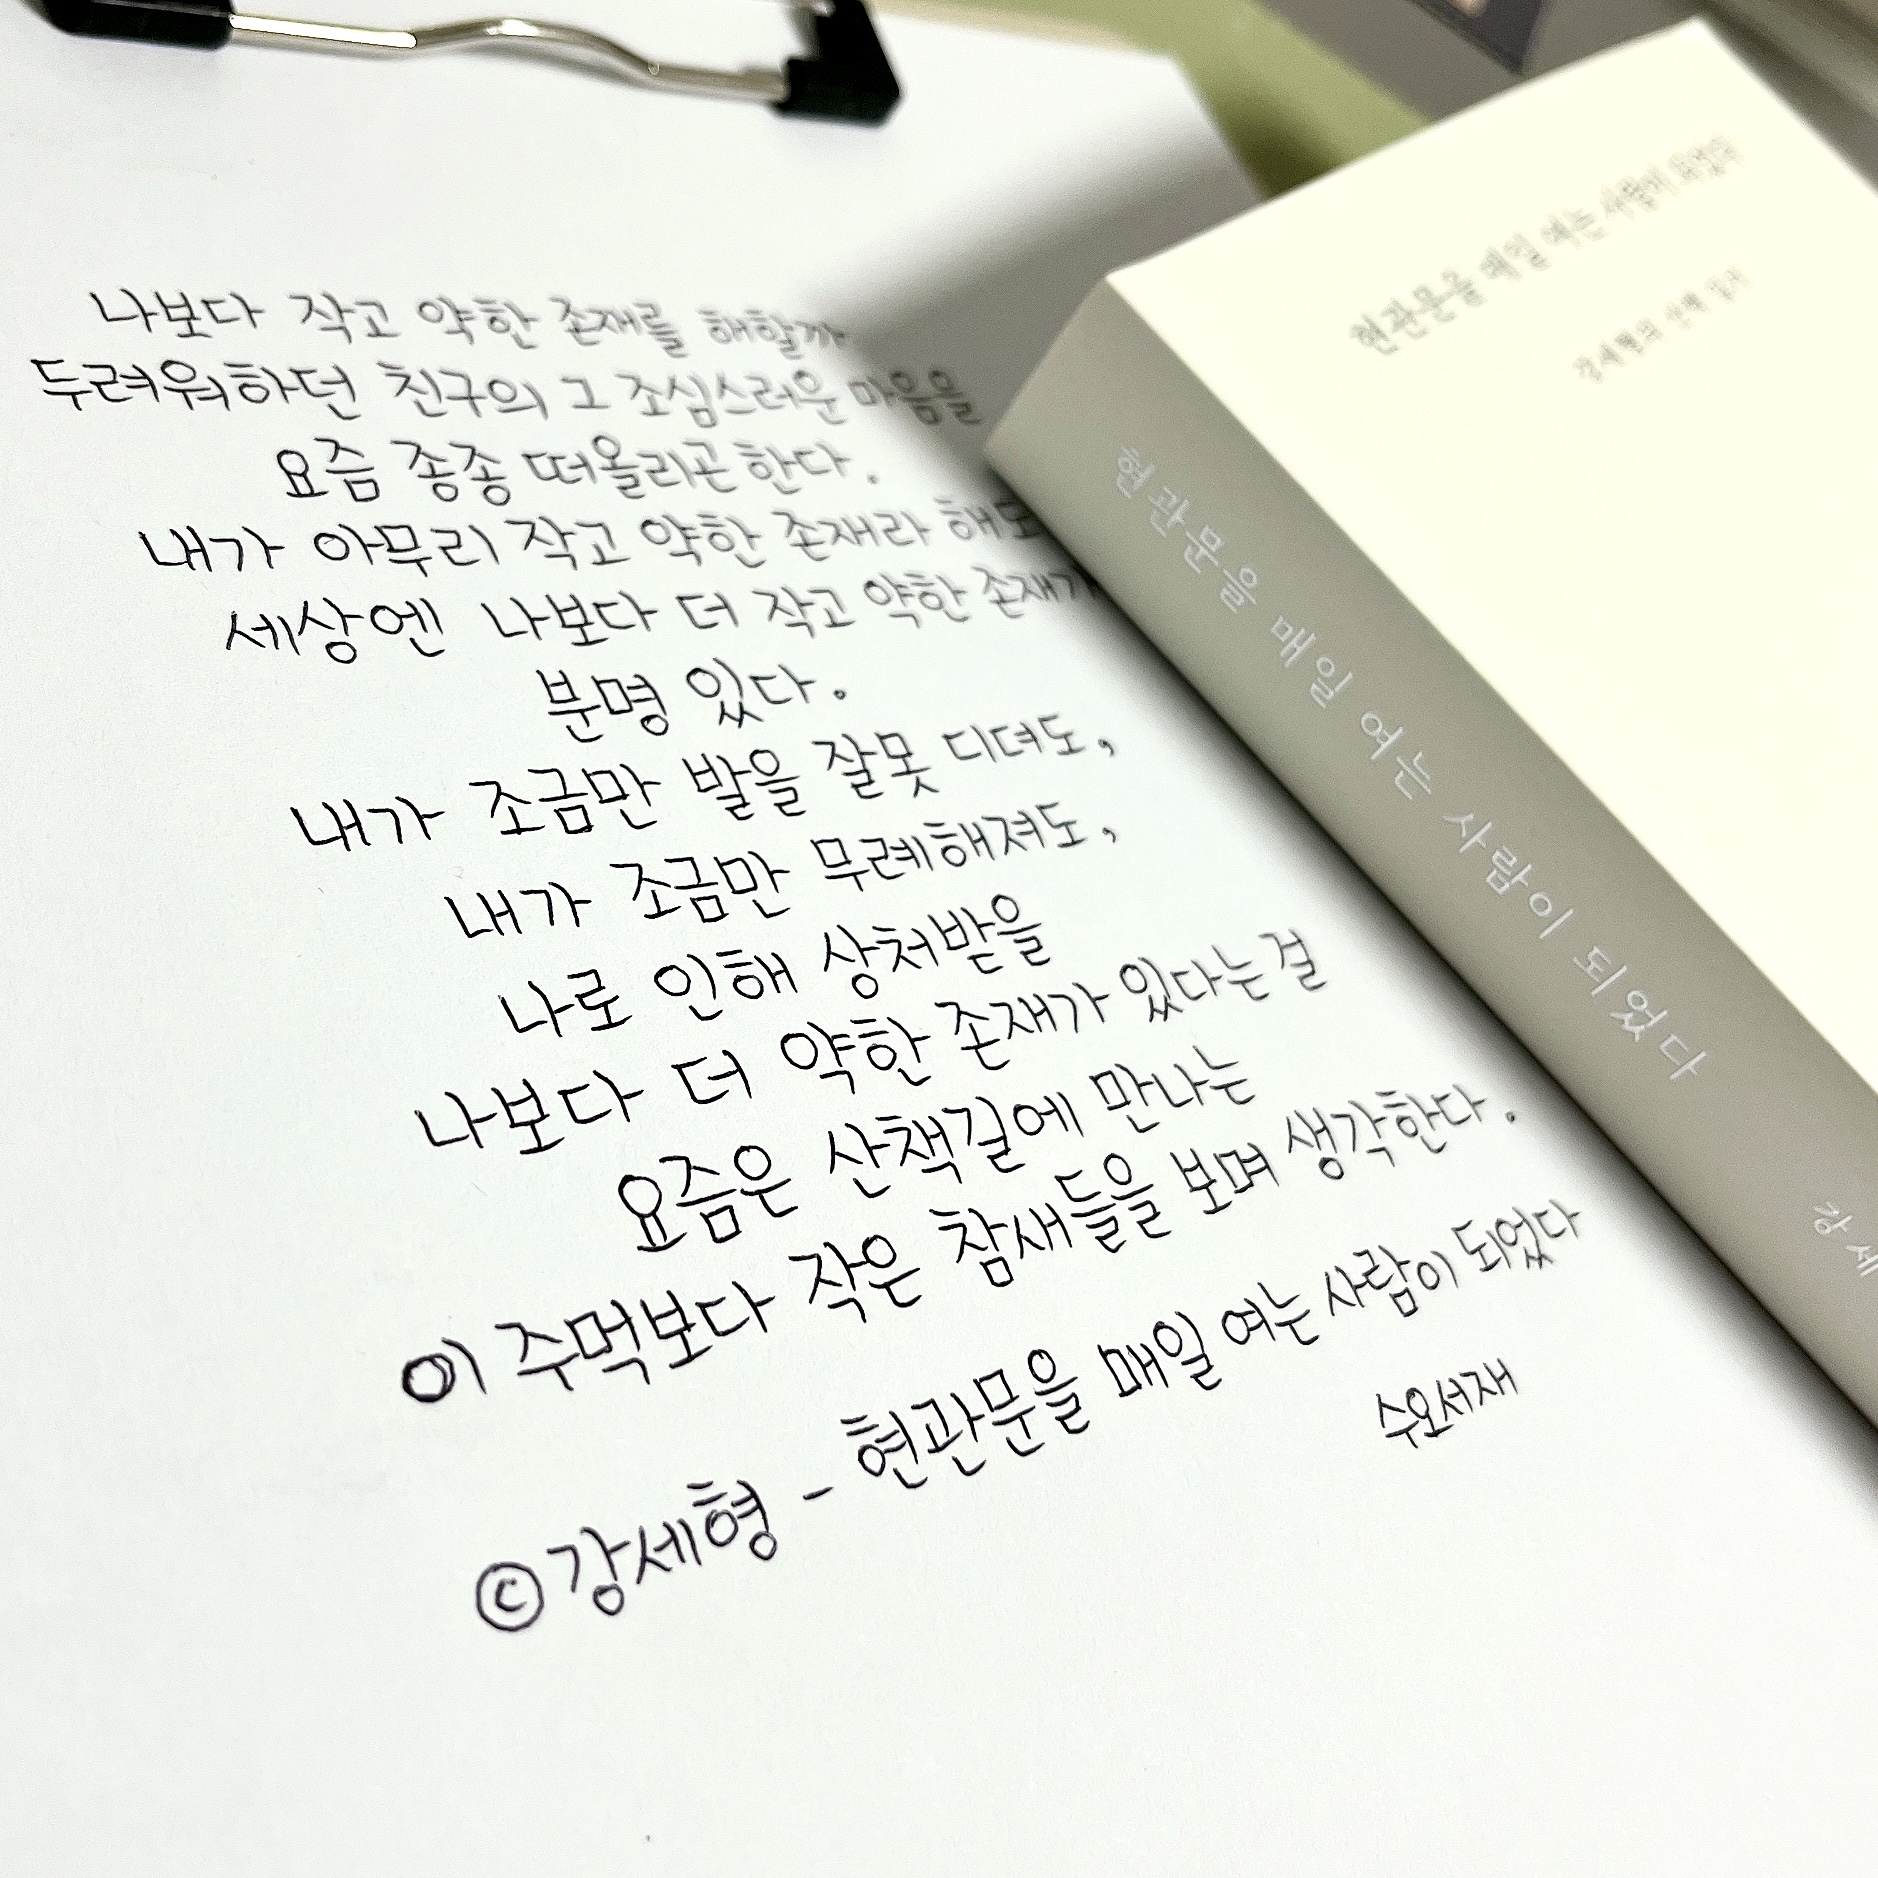 나보다 작고 약한 존재를 해할까
두려워하던 친구의 그 조심스러운 마음을
요즘 종종 떠올리곤 한다.
내가 아무리 작고 약한 존재라 해도
세상엔 나보다 더 작고 약한 존재가
분명 있다.
내가 조금만 발을 잘못 디뎌도,
내가 조금만 무례해져도,
나로 인해 상처받을
나보다 더 약한 존재가 있다는 걸
요즘은 산책길에 만나는
이 주먹보다 작은 참새들을 보며 생각한다.
ⓒ 강세형 - 현관문을 매일 여는 사람이 되었다
수오서재
현관문을 매일 여는 사람이 되었다
강세형의 산책 일기
현관문을 매일 여는 사람이 되었다
강세